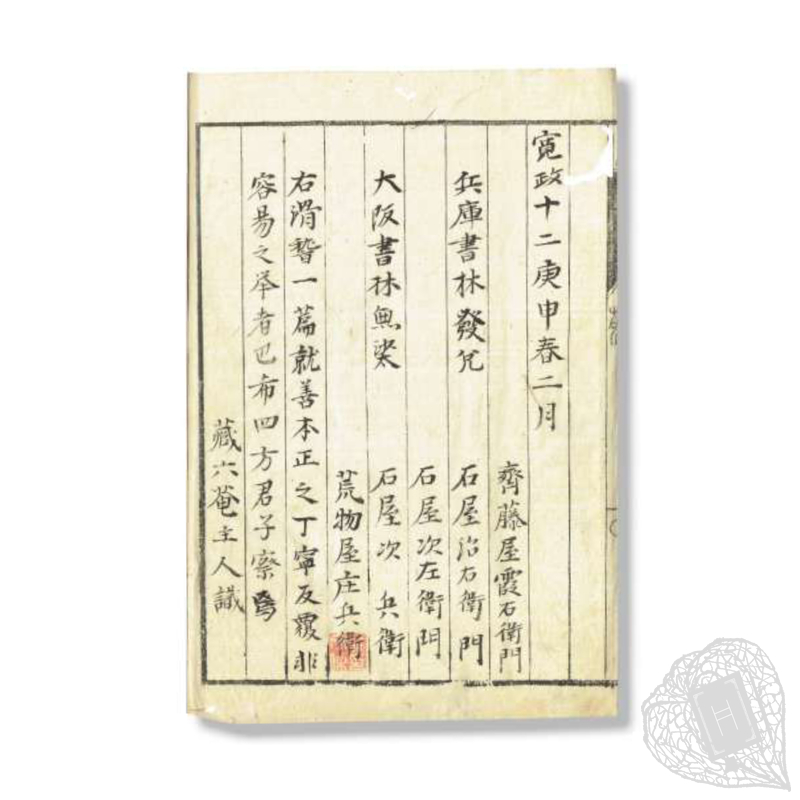 寛政十二庚申春二月
齊藤屋霞右衛門
兵庫書林發兌 石屋治右衛門
石屋次左衛門
大阪書林無 石屋次兵衛
荒物屋庄兵衛
右滑稽一篇就善本正之丁寧反覆非
容易之举者巴布四方君子察焉
藏六菴主人識
H